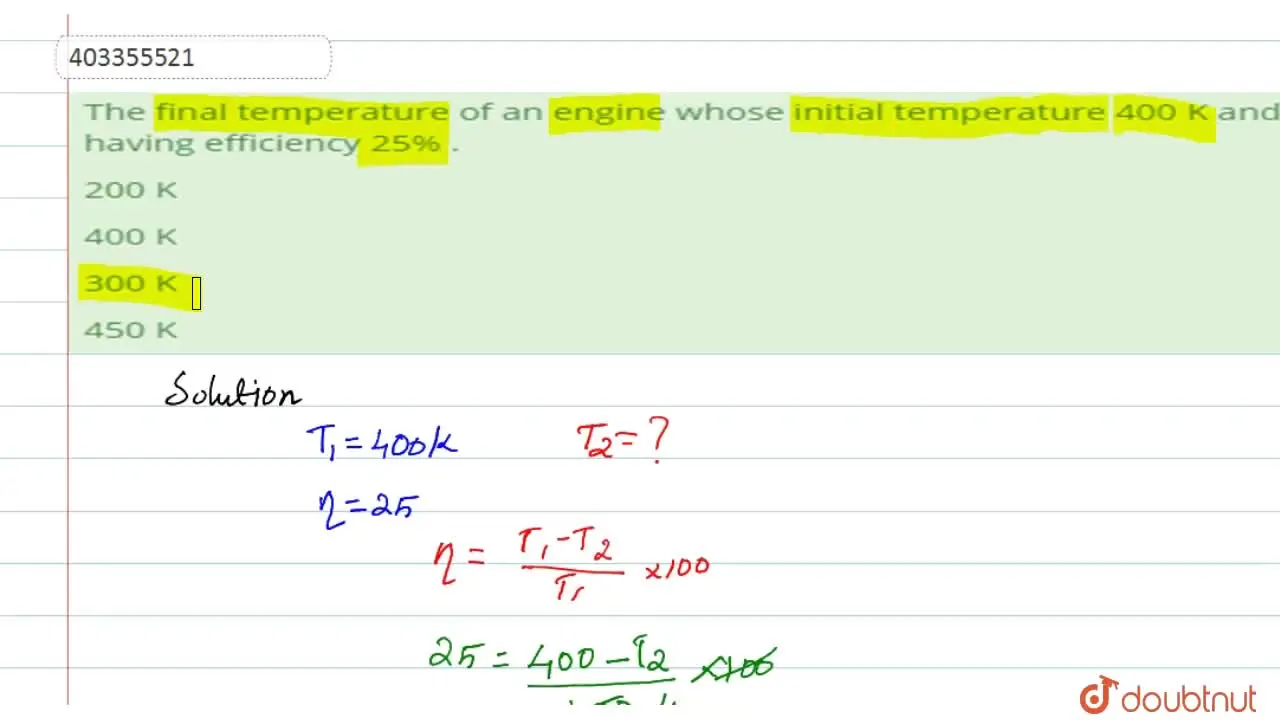 403355521
The final temperature of an engine whose initial temperature 400 K and
having efficiency 25% .
200 K
400 K
300 K
450 K
Solution
T₁ = 400K T₂ = ?
η = 25
η = T₁ - T₂ / T₁ × 100
25 = 400 - T₂ ×100
doubtnut